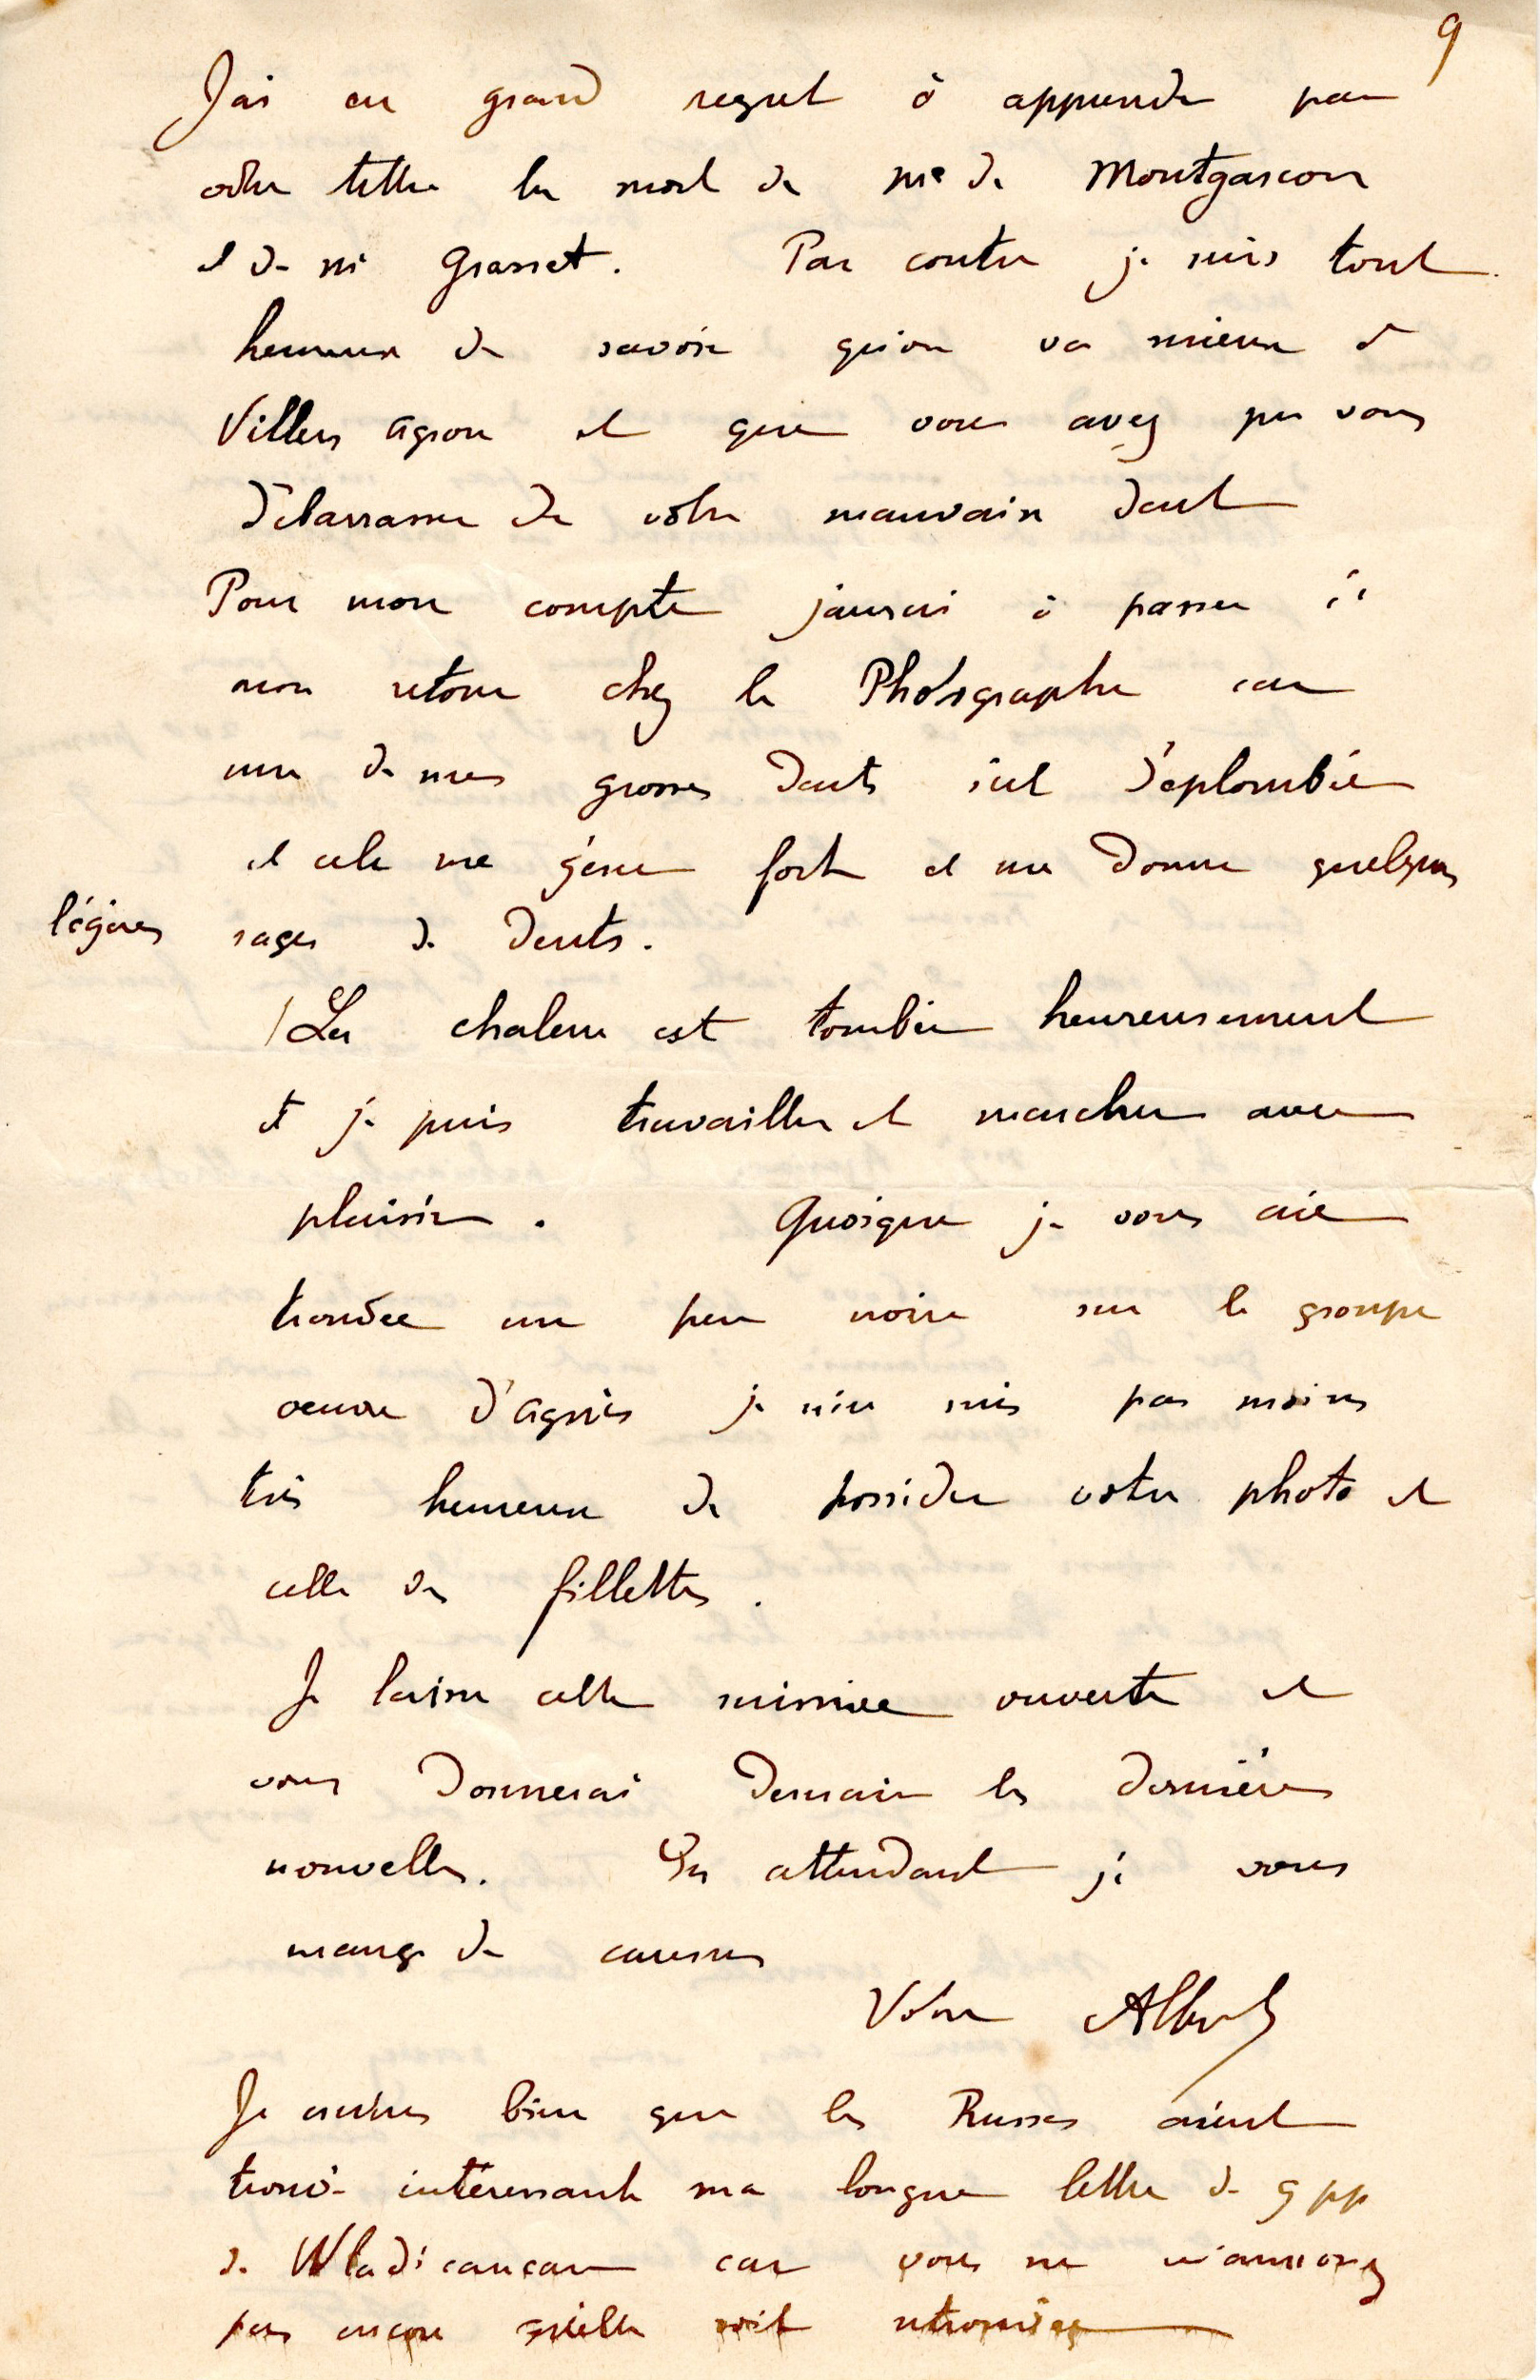 9
J'ai eu grand regret à apprendre par
votre lettre la mort de Me de Montgascon
et de Mr Grasset. Par contre je suis tout
heureux de savoir qu'on va mieux à
Villers Agron et que vous avez pu vous
débarrasser de votre mauvaise dent
Pour mon compte j'aurai à passer à
mon retour chez le Photographe car
une de mes grosses dents s'est déplombée
et cela me gêne fort et me donne quelques
légères rages de dents.
La chaleur est tombée heureusement
et je puis travailler et marcher avec
plaisir. Quoique je vous aie
trouvée un peu noire sur le groupe
oeuvre d'Agnès je n'en suis pas moins
très heureux de posséder votre photo et
celle des fillettes.
Je laisse cette missive ouverte et
vous donnerai demain les dernières
nouvelles. En attendant je vous
mange de caresses
Votre Albert
Je crains bien que les Russes aient
trouvé intéressante ma longue lettre de 9 pp
de Wladicaucase car vous ne m'annoncez
pas encore qu'elle soit retrouvée